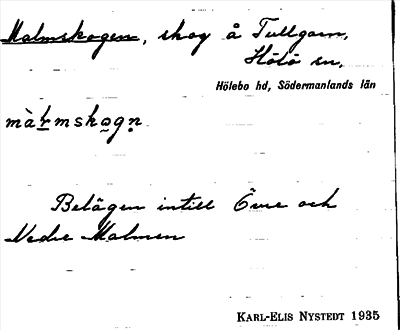 Malmskogen, skog å Tullgarn,
Hölö sn,
Hölebo hd, Södermanlands län
màl̥mskogn̥.
Belägen intill Övre och
Nedre Malmen
KARL-ELIS NYSTEDT 1935